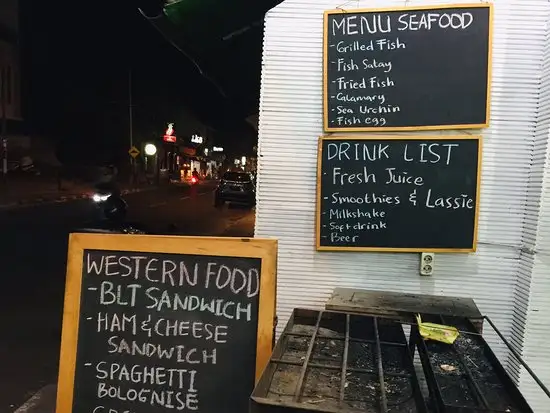 MENU SEAFOOD
- Grilled Fish
- Fish Satay
- Fried Fish
- Calamary
- Sea Urchin
- Fish egg
DRINK LIST
- Fresh Juice
- Smoothies & Lassie
- Milkshake
- Soft drink
- Beer
WESTERN FOOD
- BLT SANDWICH
- HAM & CHEESE
SANDWICH
- SPAGHETTI
BOLOGNISE